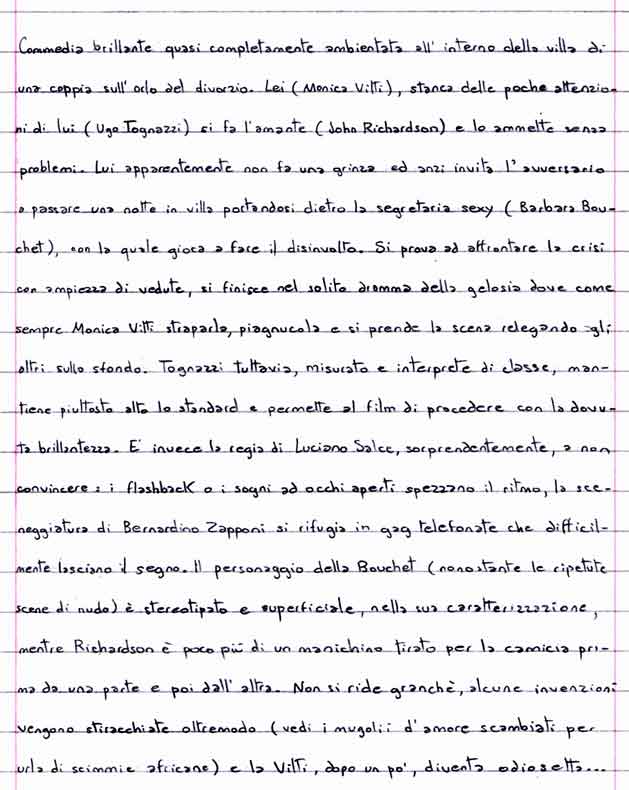 Commedia brillante quasi completamente ambientata all'interno della villa di
una coppia sull'orlo del divorzio. Lei (Monica Vitti), stanca delle poche attenzio-
ni di lui (Ugo Tognazzi) si fa l'amante (John Richardson) e lo ammette senza
problemi. Lui apparentemente non fa una grinza ed anzi invita l'avversario
a passare una notte in villa portandosi dietro la segretaria sexy (Barbara Bou-
chet), con la quale gioca a fare il disinvolto. Si prova ad affrontare la crisi
con ampiezza di vedute, si finisce nel solito dramma della gelosia dove come
sempre Monica Vitti straparla, piagnucola e si prende la scena relegando gli
altri sullo sfondo. Tognazzi tuttavia, misurato e interprete di classe, man-
tiene piuttosto alto lo standard e permette al film di procedere con la dovu-
ta brillantezza. E' invece la regia di Luciano Salce, sorprendentemente, a non
convincere: i flashback o i sogni ad occhi aperti spezzano il ritmo, la sce-
neggiatura di Bernardino Zapponi si rifugia in gag telefonate che difficil-
mente lasciano il segno. Il personaggio della Bouchet (nonostante le ripetute
scene di nudo) è stereotipato e superficiale, nella sua caratterizzazione,
mentre Richardson è poco più di un manichino tirato per la camicia pri-
ma da una parte e poi dall'altra. Non si ride granchè, alcune invenzioni
vengono stiracchiate oltremodo (vedi i mugolii d'amore scambiati per
urla di scimmie africane) e la Vitti, dopo un po', diventa odiosetta...